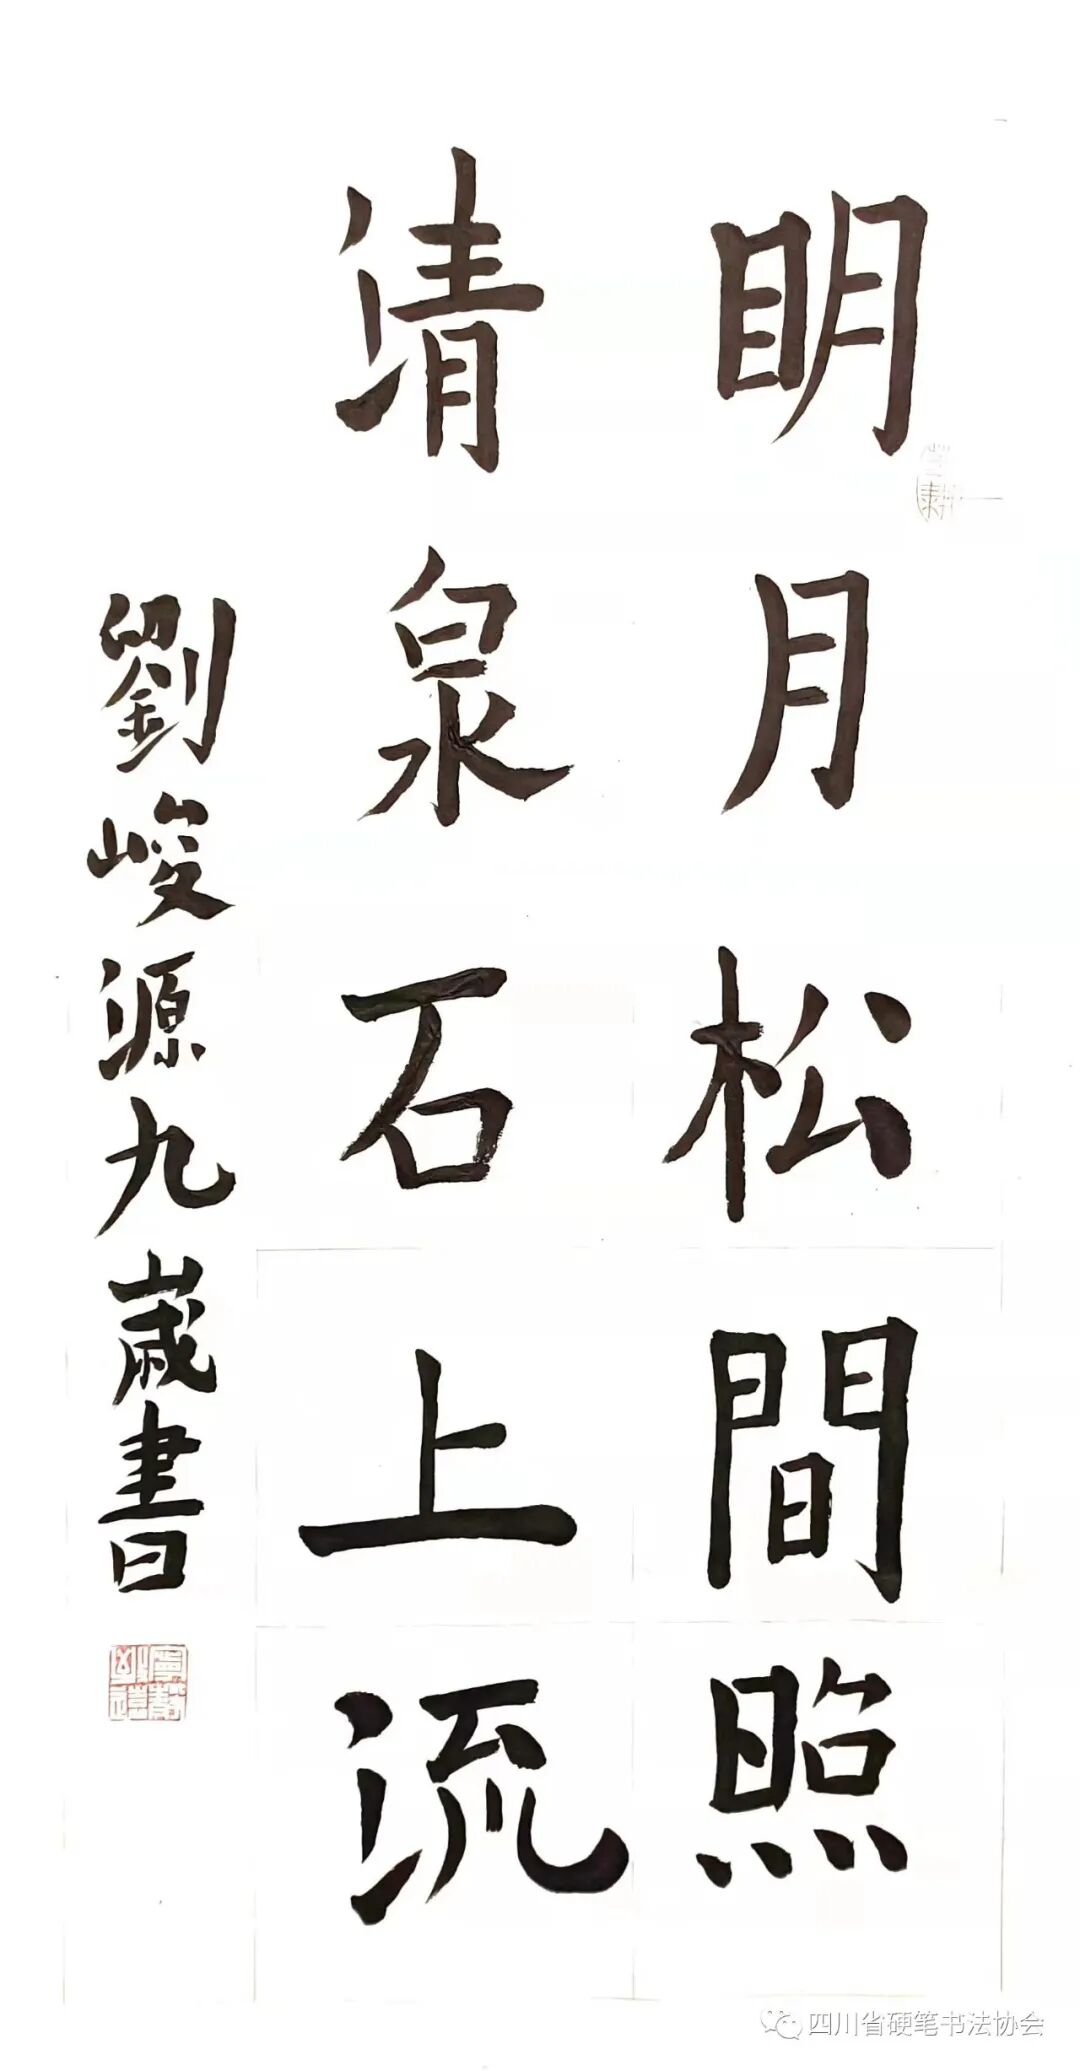 明月松間照
清泉石上流
劉峻源九歲書
四川省硬笔书法协会